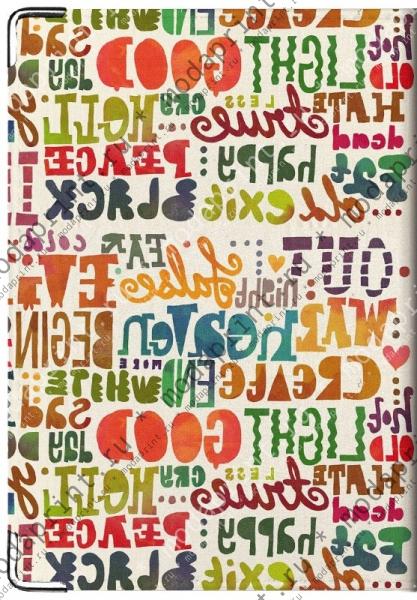 sad GOOD LIGHT hot
JOY OLD
HELL CRY LESS true HATE
PEACE happy dead
BLACK EXIT old
COLD EAR OUT
false night
BEGIN heaven WAR
WHITE MORE END CREATE
sad GOOD LIGHT hot
JOY OLD
HELL CRY LESS true HATE
PEACE happy dead
BLACK EXIT old
modaprint.ru * modaprint.ru